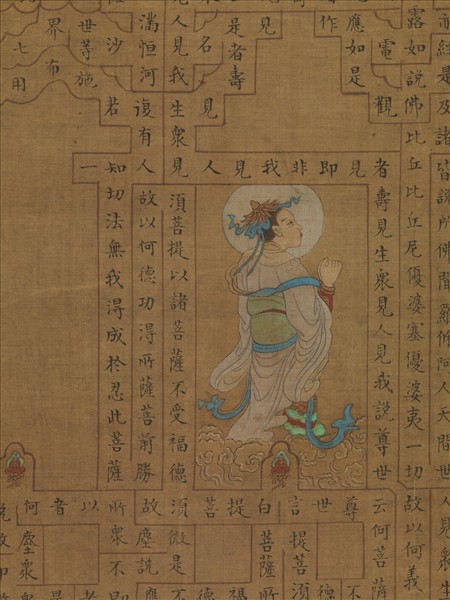 皆說所佛聞羅脩阿人天間世
露如說佛比丘比丘尼優婆塞優婆夷一切
故以何義
電觀
者壽見生衆見人見我說尊世
云何菩薩
應如是
作
一知人見人見我非即見者
見
是者壽
名見
人見我生衆見
須菩提以諸菩薩不受福德
滿恒河復有人
故以何德功得所薩菩前勝
沙若知切法無我得成於忍此菩薩
世等施
界布
七用
何者以所故須菩提白言世尊云
提菩須
菩薩所
微是
塵說應
衆不
塵衆